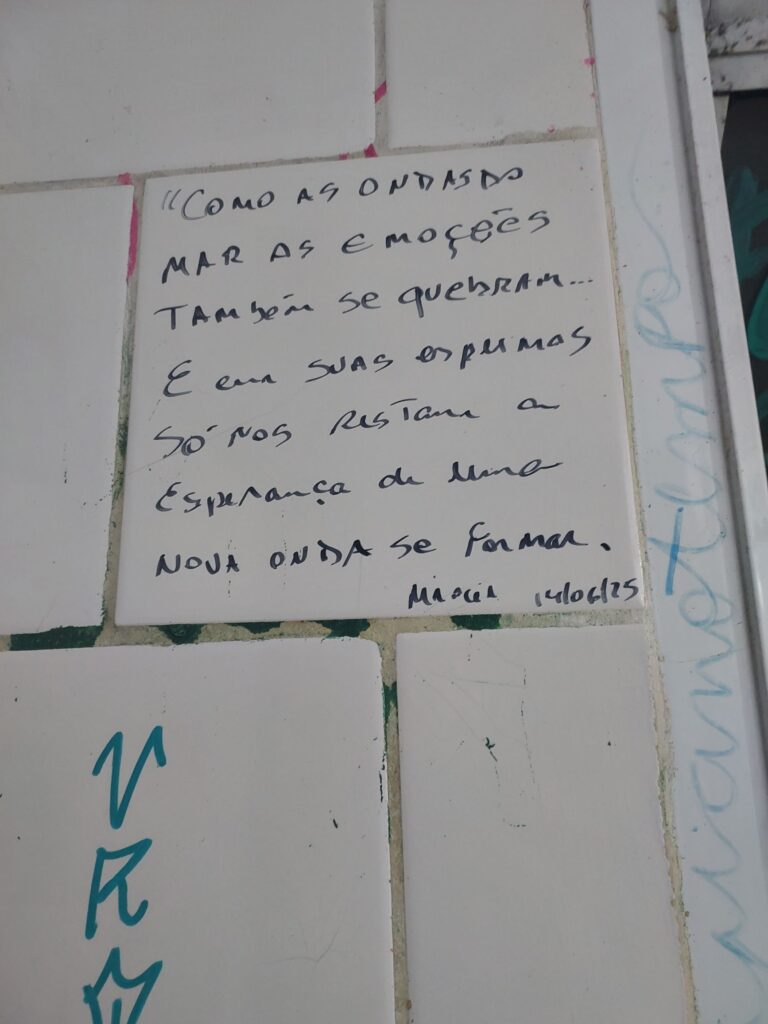 "COMO AS ONDAS DO
MAR AS EMOÇÕES
TAMBÉM SE QUEBRAM...
E em SUAS espumas
SÓ NOS RESTAM a
Esperança de uma
NOVA ONDA Se Formar.
MÁRCIA 14/06/25
V
R